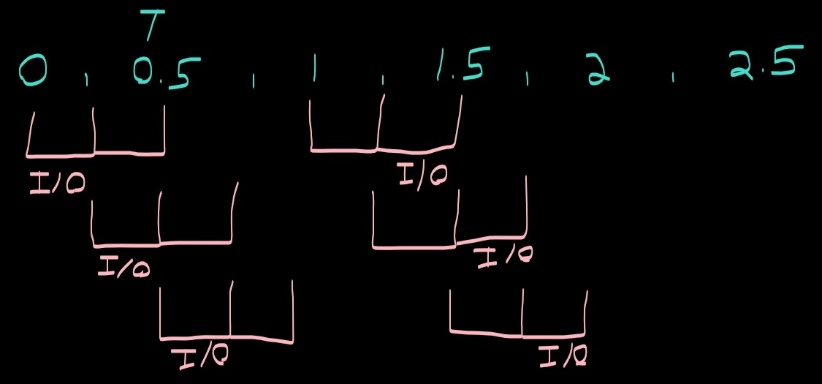 T
0 , 0.5 , 1 , 1.5 , 2 , 2.5
I/O I/O
I/O I/O
I/O I/O